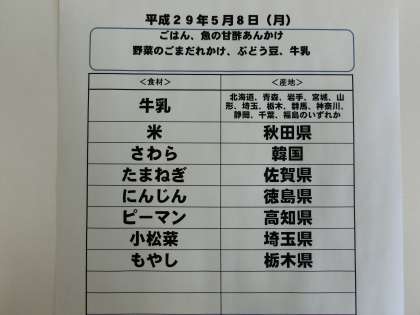 平成29年5月8日（月）
ごはん、魚の甘酢あんかけ
野菜のごまだれかけ、ぶどう豆、牛乳
＜食材＞ ＜産地＞
牛乳 北海道、青森、岩手、宮城、山
形、埼玉、栃木、群馬、神奈川、
静岡、千葉、福島のいずれか
米 秋田県
さわら 韓国
たまねぎ 佐賀県
にんじん 徳島県
ピーマン 高知県
小松菜 埼玉県
もやし 栃木県